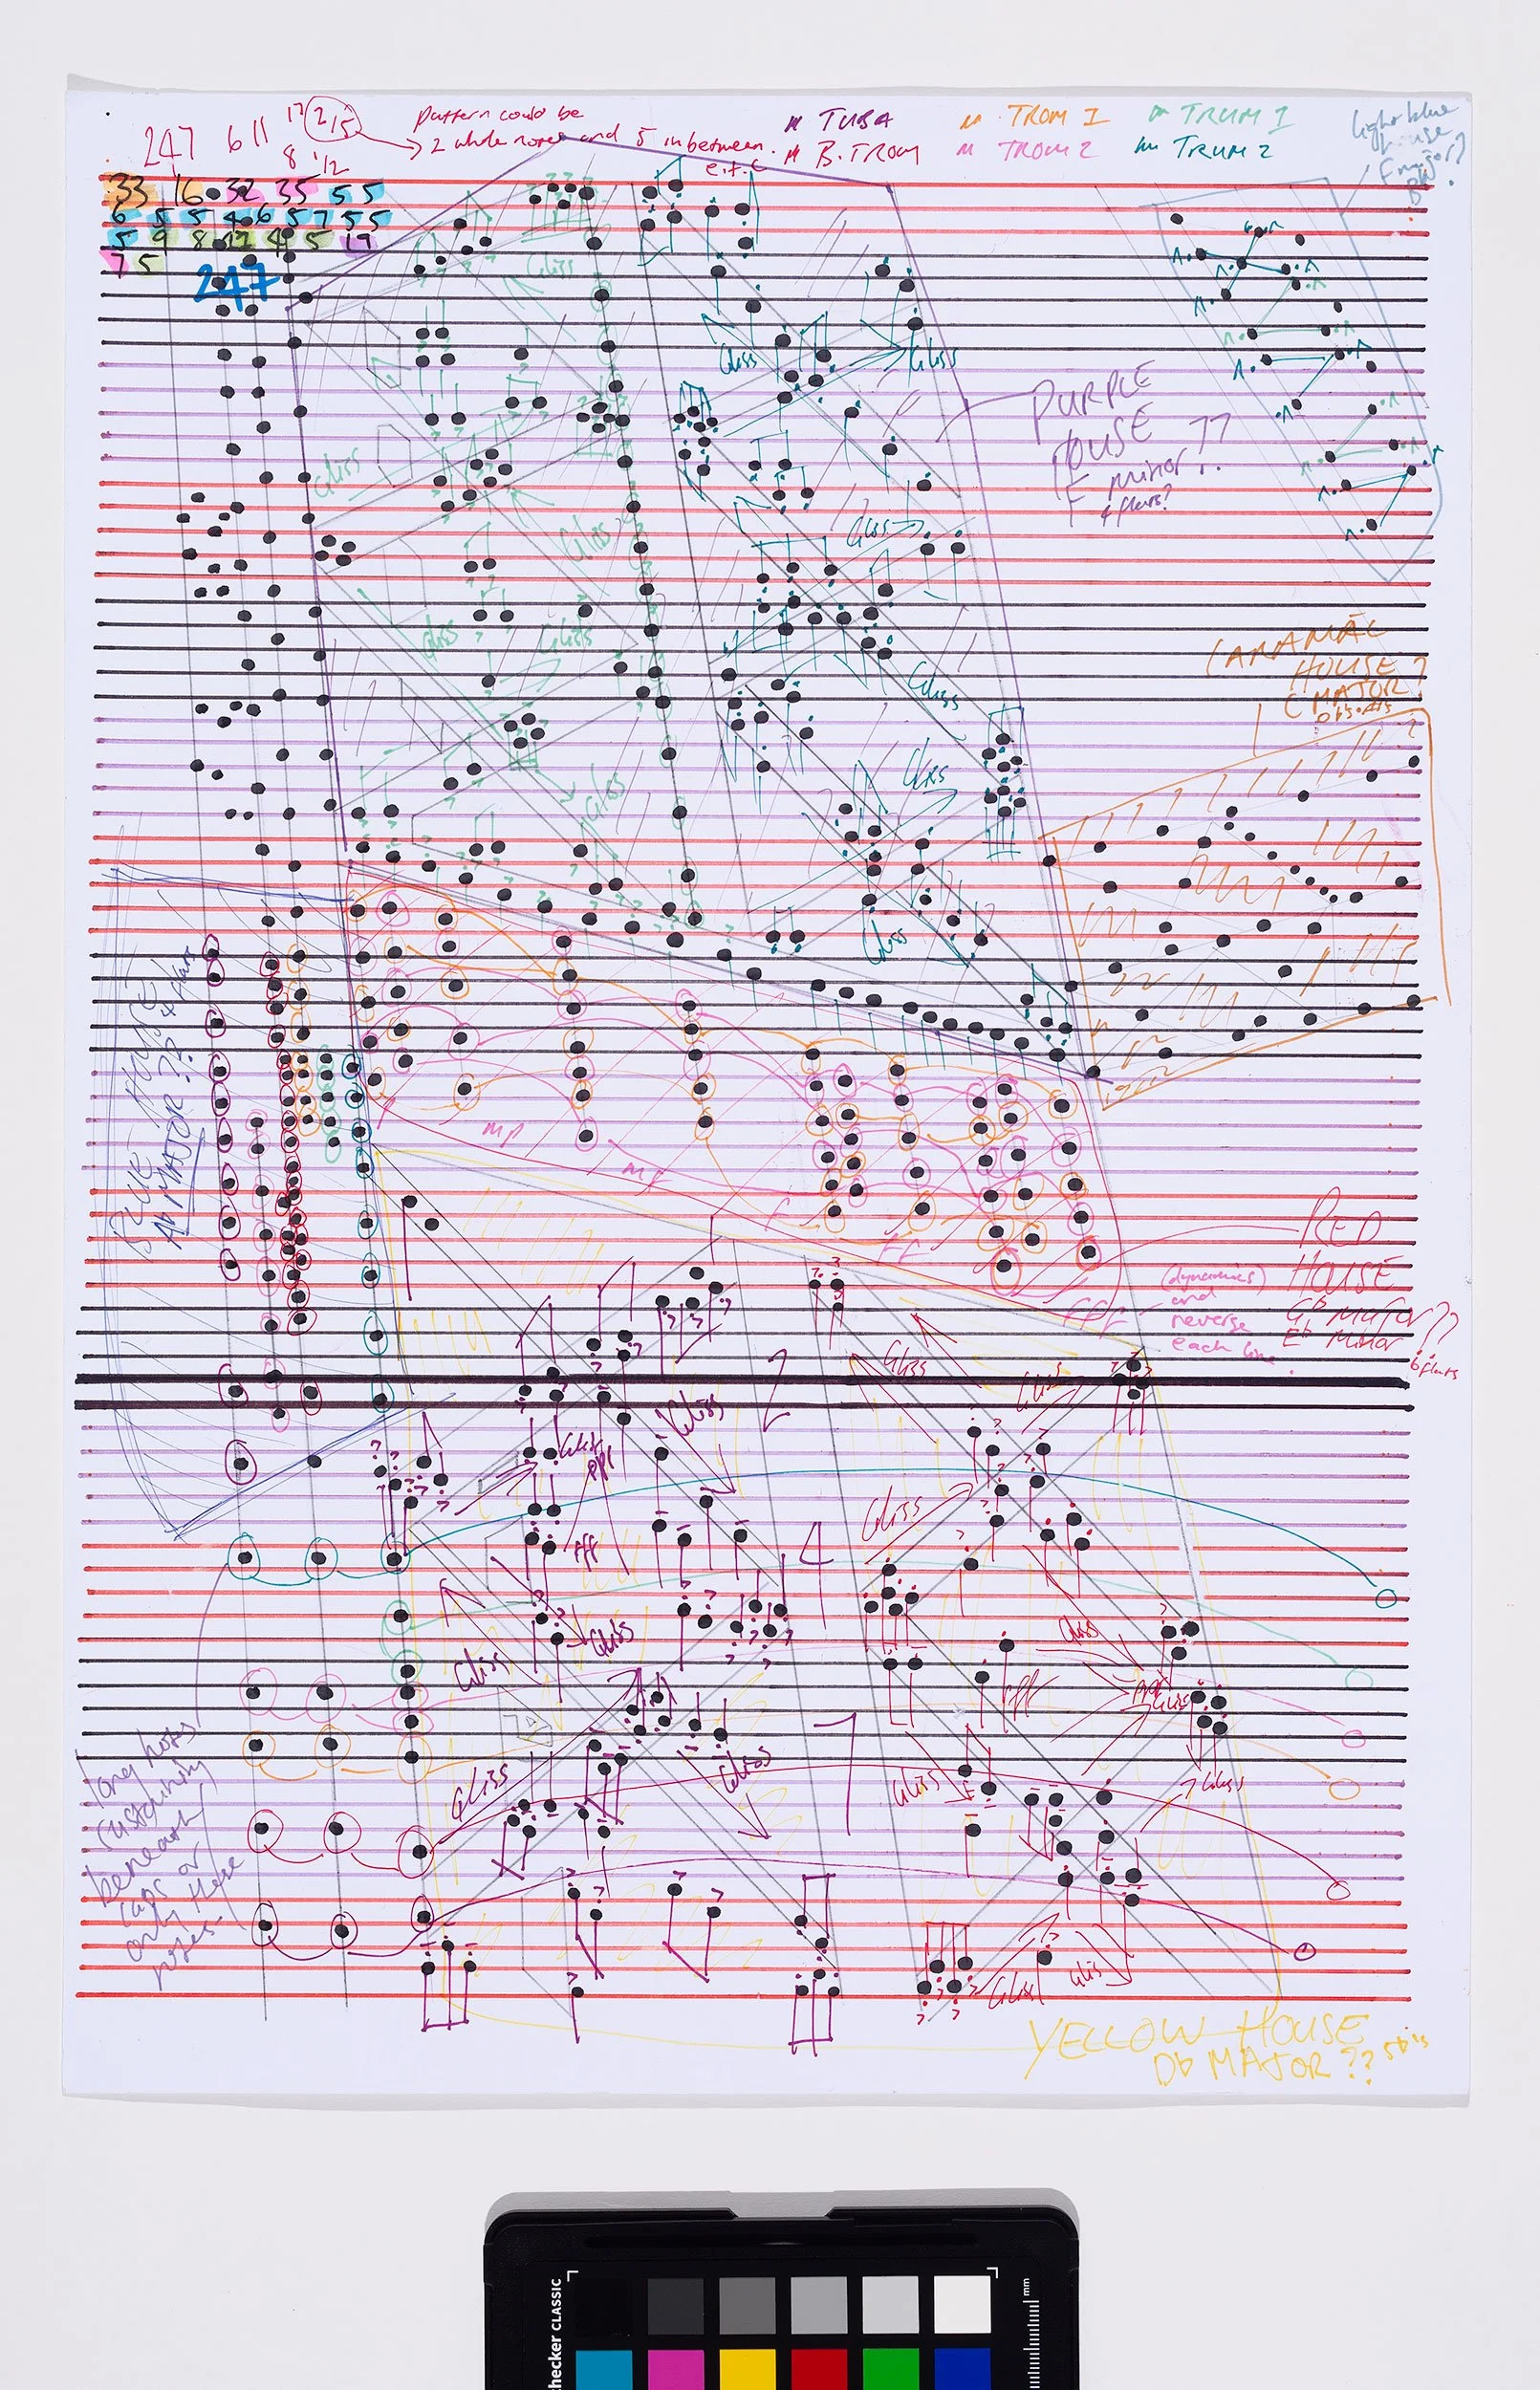 247 611 17 2/5
8 1/2
Pattern could be
2 whole notes and 5 in between.
e.t.c
" TUBA
" B. TROM
" TROM 1
" TROM 2
" TRUM 1
" TRUM 2
light blue
house
F major?
33 16 32 35 5 5
6 5 5 4 6 5 7 5 5
5 9 8 12 4 5 17
7 5
247
Gliss
Gliss
Gliss
PURPLE
HOUSE
F minor??
4 flats?
Gliss
Gliss
Gliss
Gliss
Gliss
Gliss
CARAMAC
HOUSE?
C MAJOR?
Gliss
Gliss
Gliss
BLUE HOUSE
Ab MAJOR??
4 flats
mp
mf
f
ff
fff
RED
HOUSE
Gb MAJOR??
Eb Minor
6 flats
(dynamics)
and
reverse
each line.
2
Gliss
Gliss
Gliss
Gliss
ppp
fff
4
Gliss
Gliss
Gliss
Gliss
fff
ppp
Gliss
long notes
sustaining
beneath
caps or
only these
notes-
7
Gliss
Gliss
Gliss
Gliss
Gliss
Gliss
YELLOW HOUSE
Db MAJOR?? 5b's
checker CLASSIC
mm